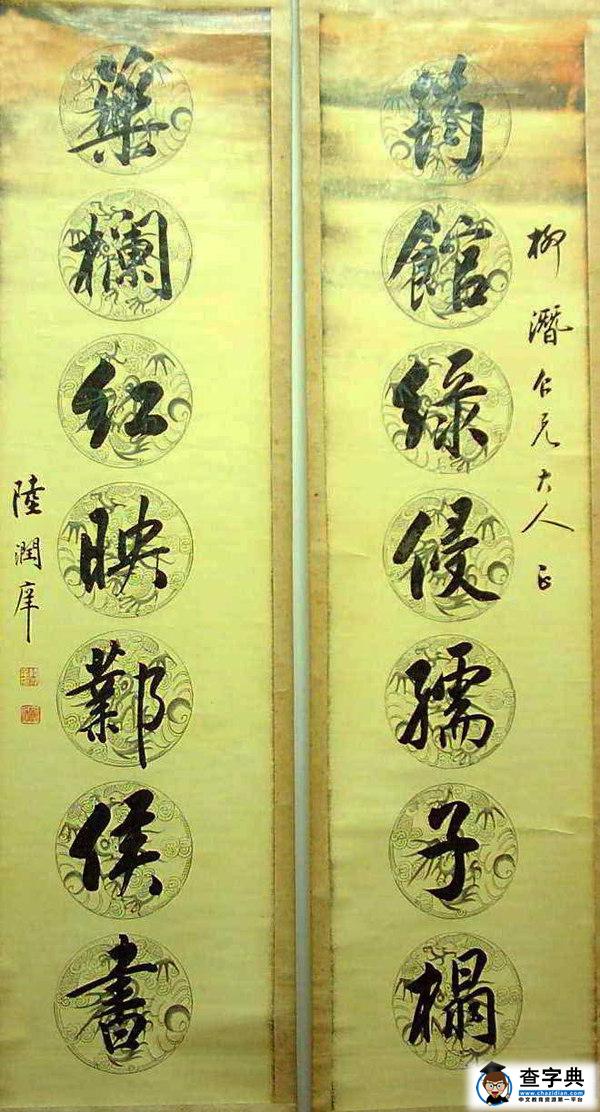 柳潛仁兄大人正
筠館綠侵孺子榻
藥欄紅映鄴侯書
陸潤庠
查字典
www.chazidian.com
中文教育资源第一平台